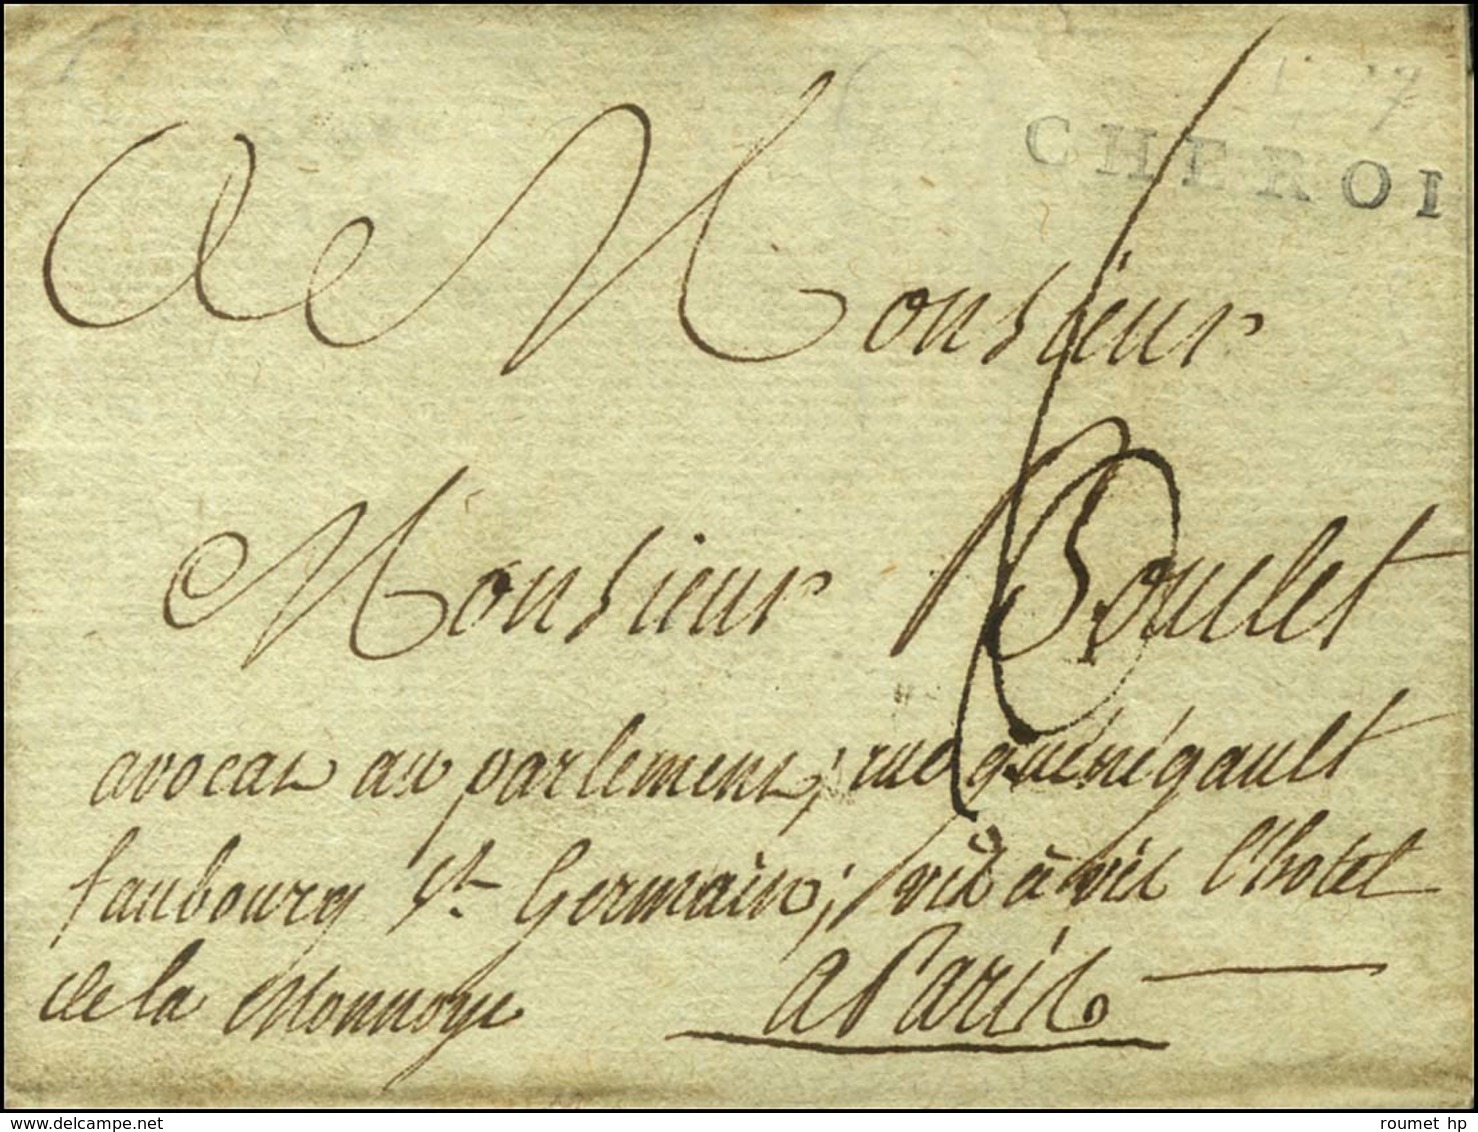 CHEROI
A Monsieur
Monsieur Boulet
avocat au parlement, rue guénégault
faubourg St. Germain; vis à vis l'hotel
de la Monnoye
a Paris
6
roumet hp